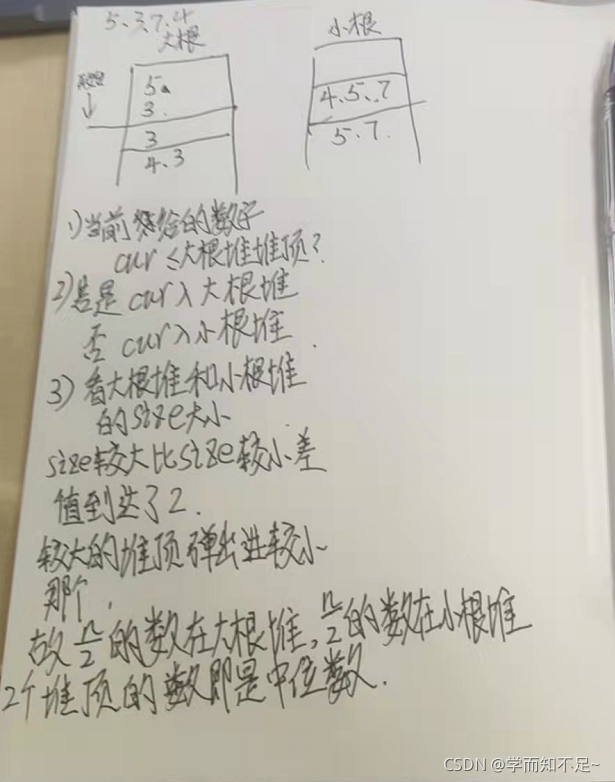 5、3、7、4
大根
小根
5
3
3
4、3
4、5、7
5、7
1)当前给的数字
cur≤大根堆堆顶?
2)若是 cur入大根堆
否 cur入小根堆
3)看大根堆和小根堆
的size大小
size较大比size较小差
值到达了2.
较大的堆顶弹出进较小
那个.
故n/2的数在大根堆,n/2的数在小根堆
2个堆顶的数即是中位数.
CSDN @学而知不足~